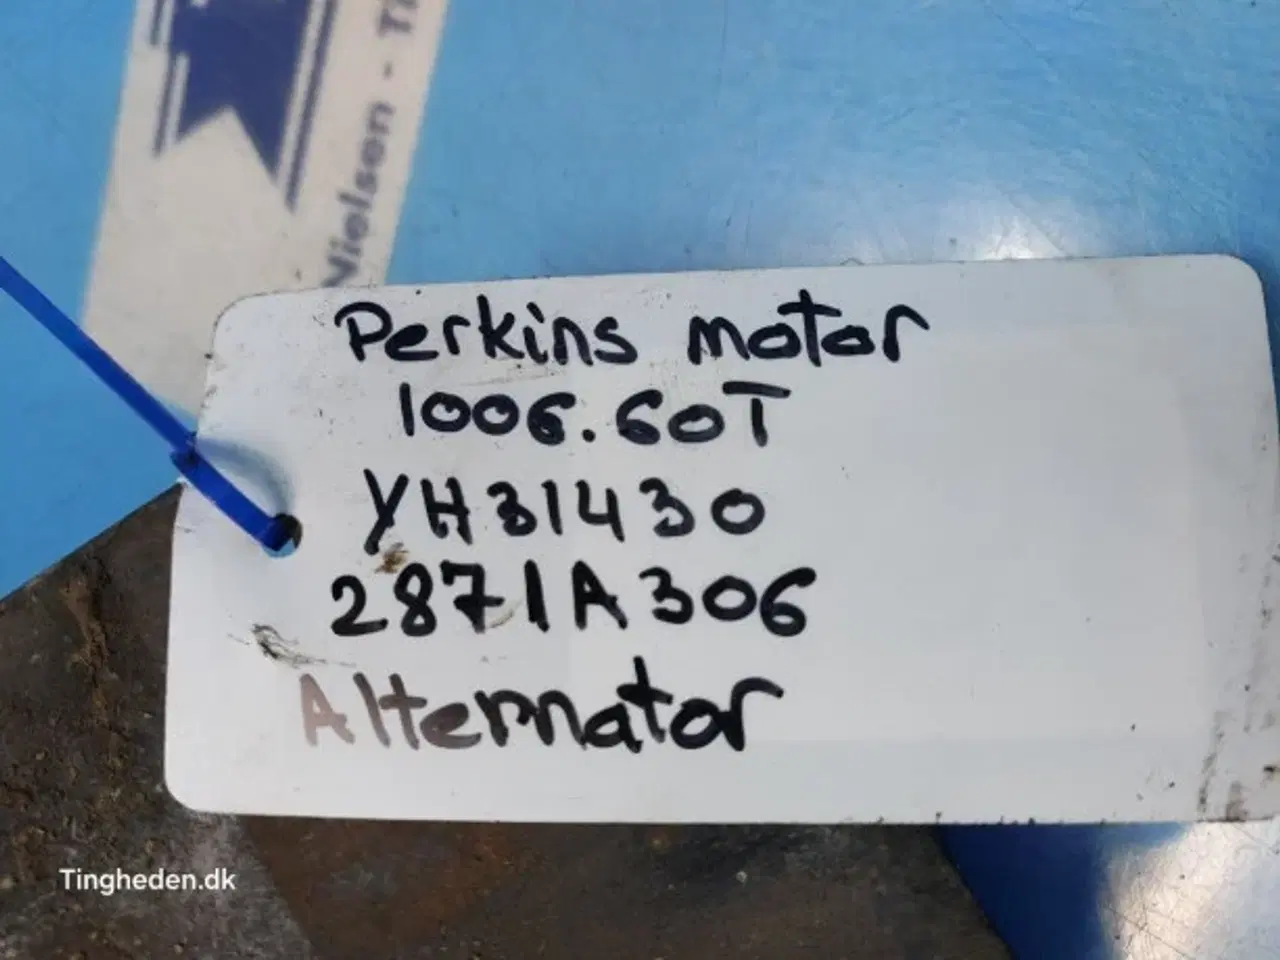 Nielsen - T
Perkins motor
1006.60T
YH31430
2871A306
Alternator
Tingheden.dk